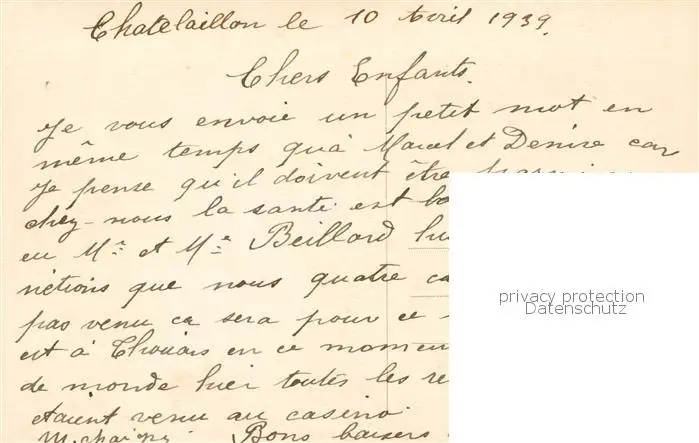 Chatelaillon le 10 Avril 1939.
Chers Enfants.
Je vous envoie un petit mot en
même temps qu'à Marcel et Denise car
Je pense qu'il doivent être
chez-nous la santé est
eu Mr et Me Beillard
nétions que nous quatre
pas venu ca sera pour ce
est à Thouars en ce momen
de monde hier toutes les
étaient venu au casino.
Bons baisers
privacy protection
Datenschutz